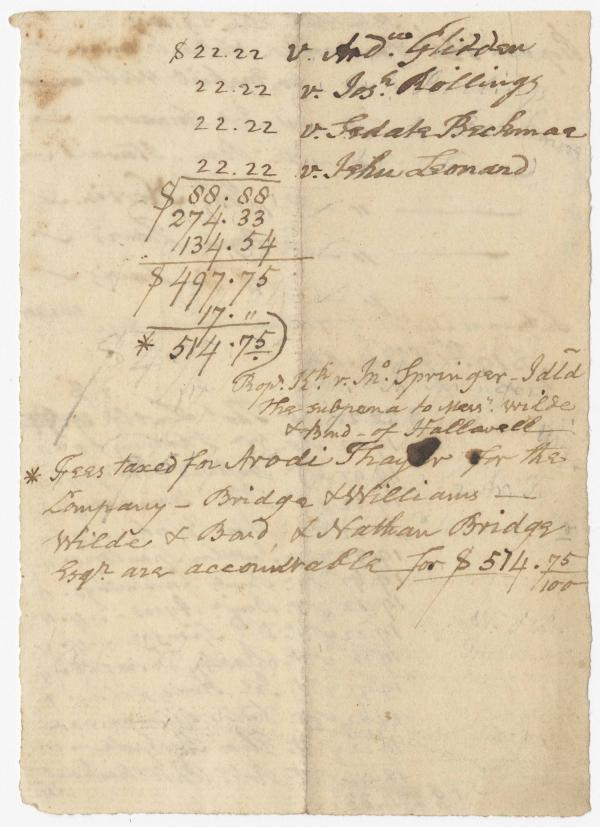 $22.22 v. And.ᵂ Glidden
22.22 v. Josʰ Rollings
22.22 v. Sedate Beckman
22.22 v. Jehu Leonard
$ 88.88
274.33
134.54
$ 497.75
17. "
* 514.75
Kʰ v. Jnº Springer - I dld
the subpena to Messʳ. Wilde
& Bond - of Hallowell
* Fees taxed for Arodi Thayer for the
Company - Bridge & Williams -
Wilde & Bond, & Nathan Bridge
Esqʳ are accountable for $ 514.75/100